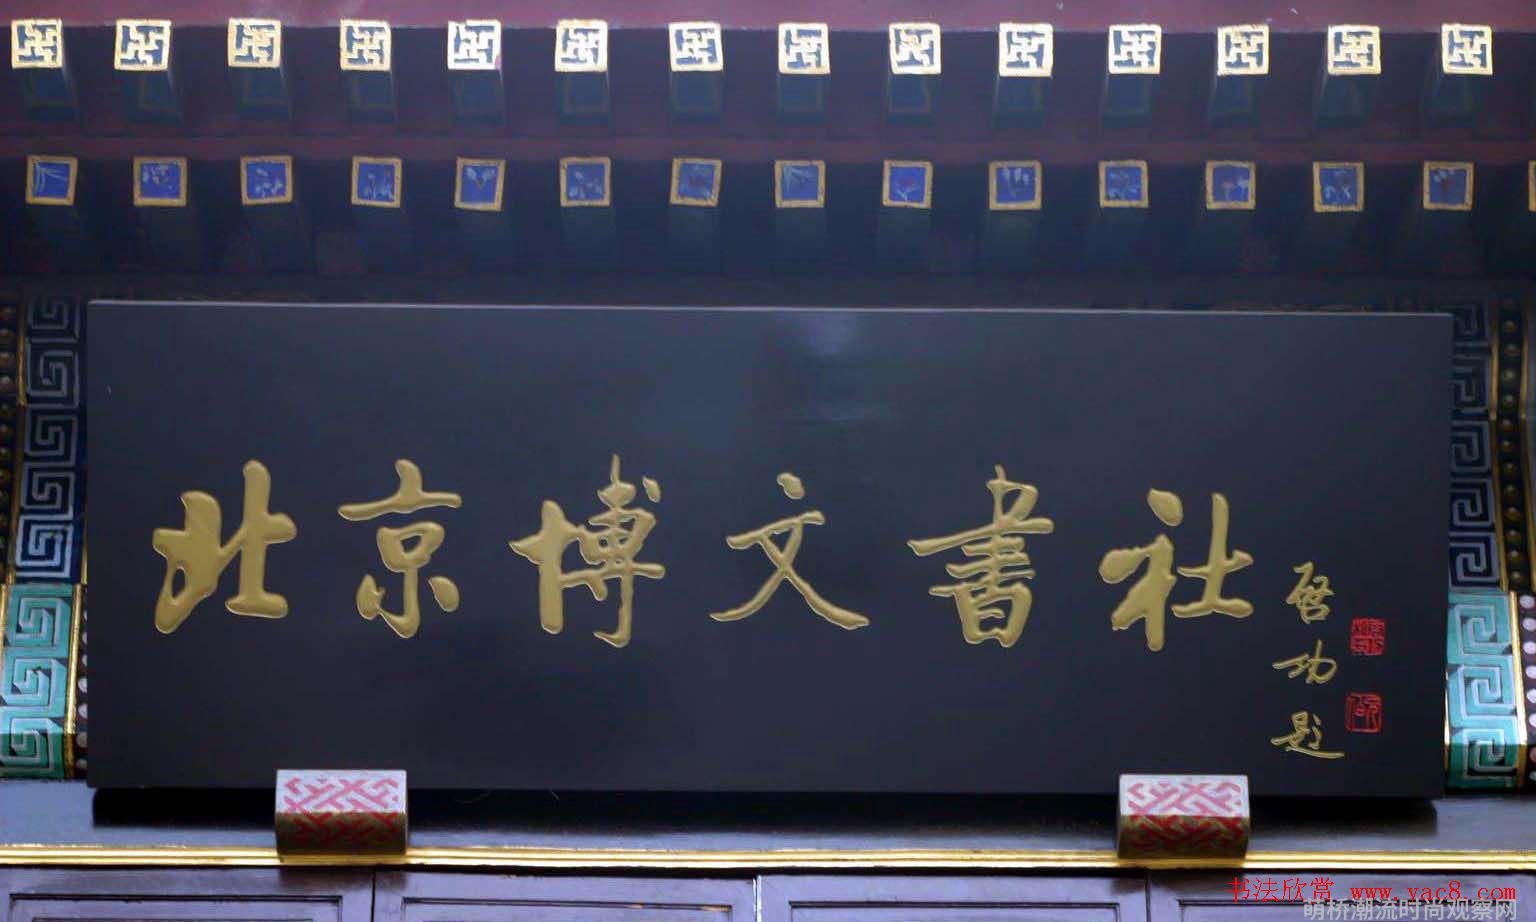 北京博文书社
启功题
书法欣赏 www.yac8.com
萌桥潮流时尚观察网